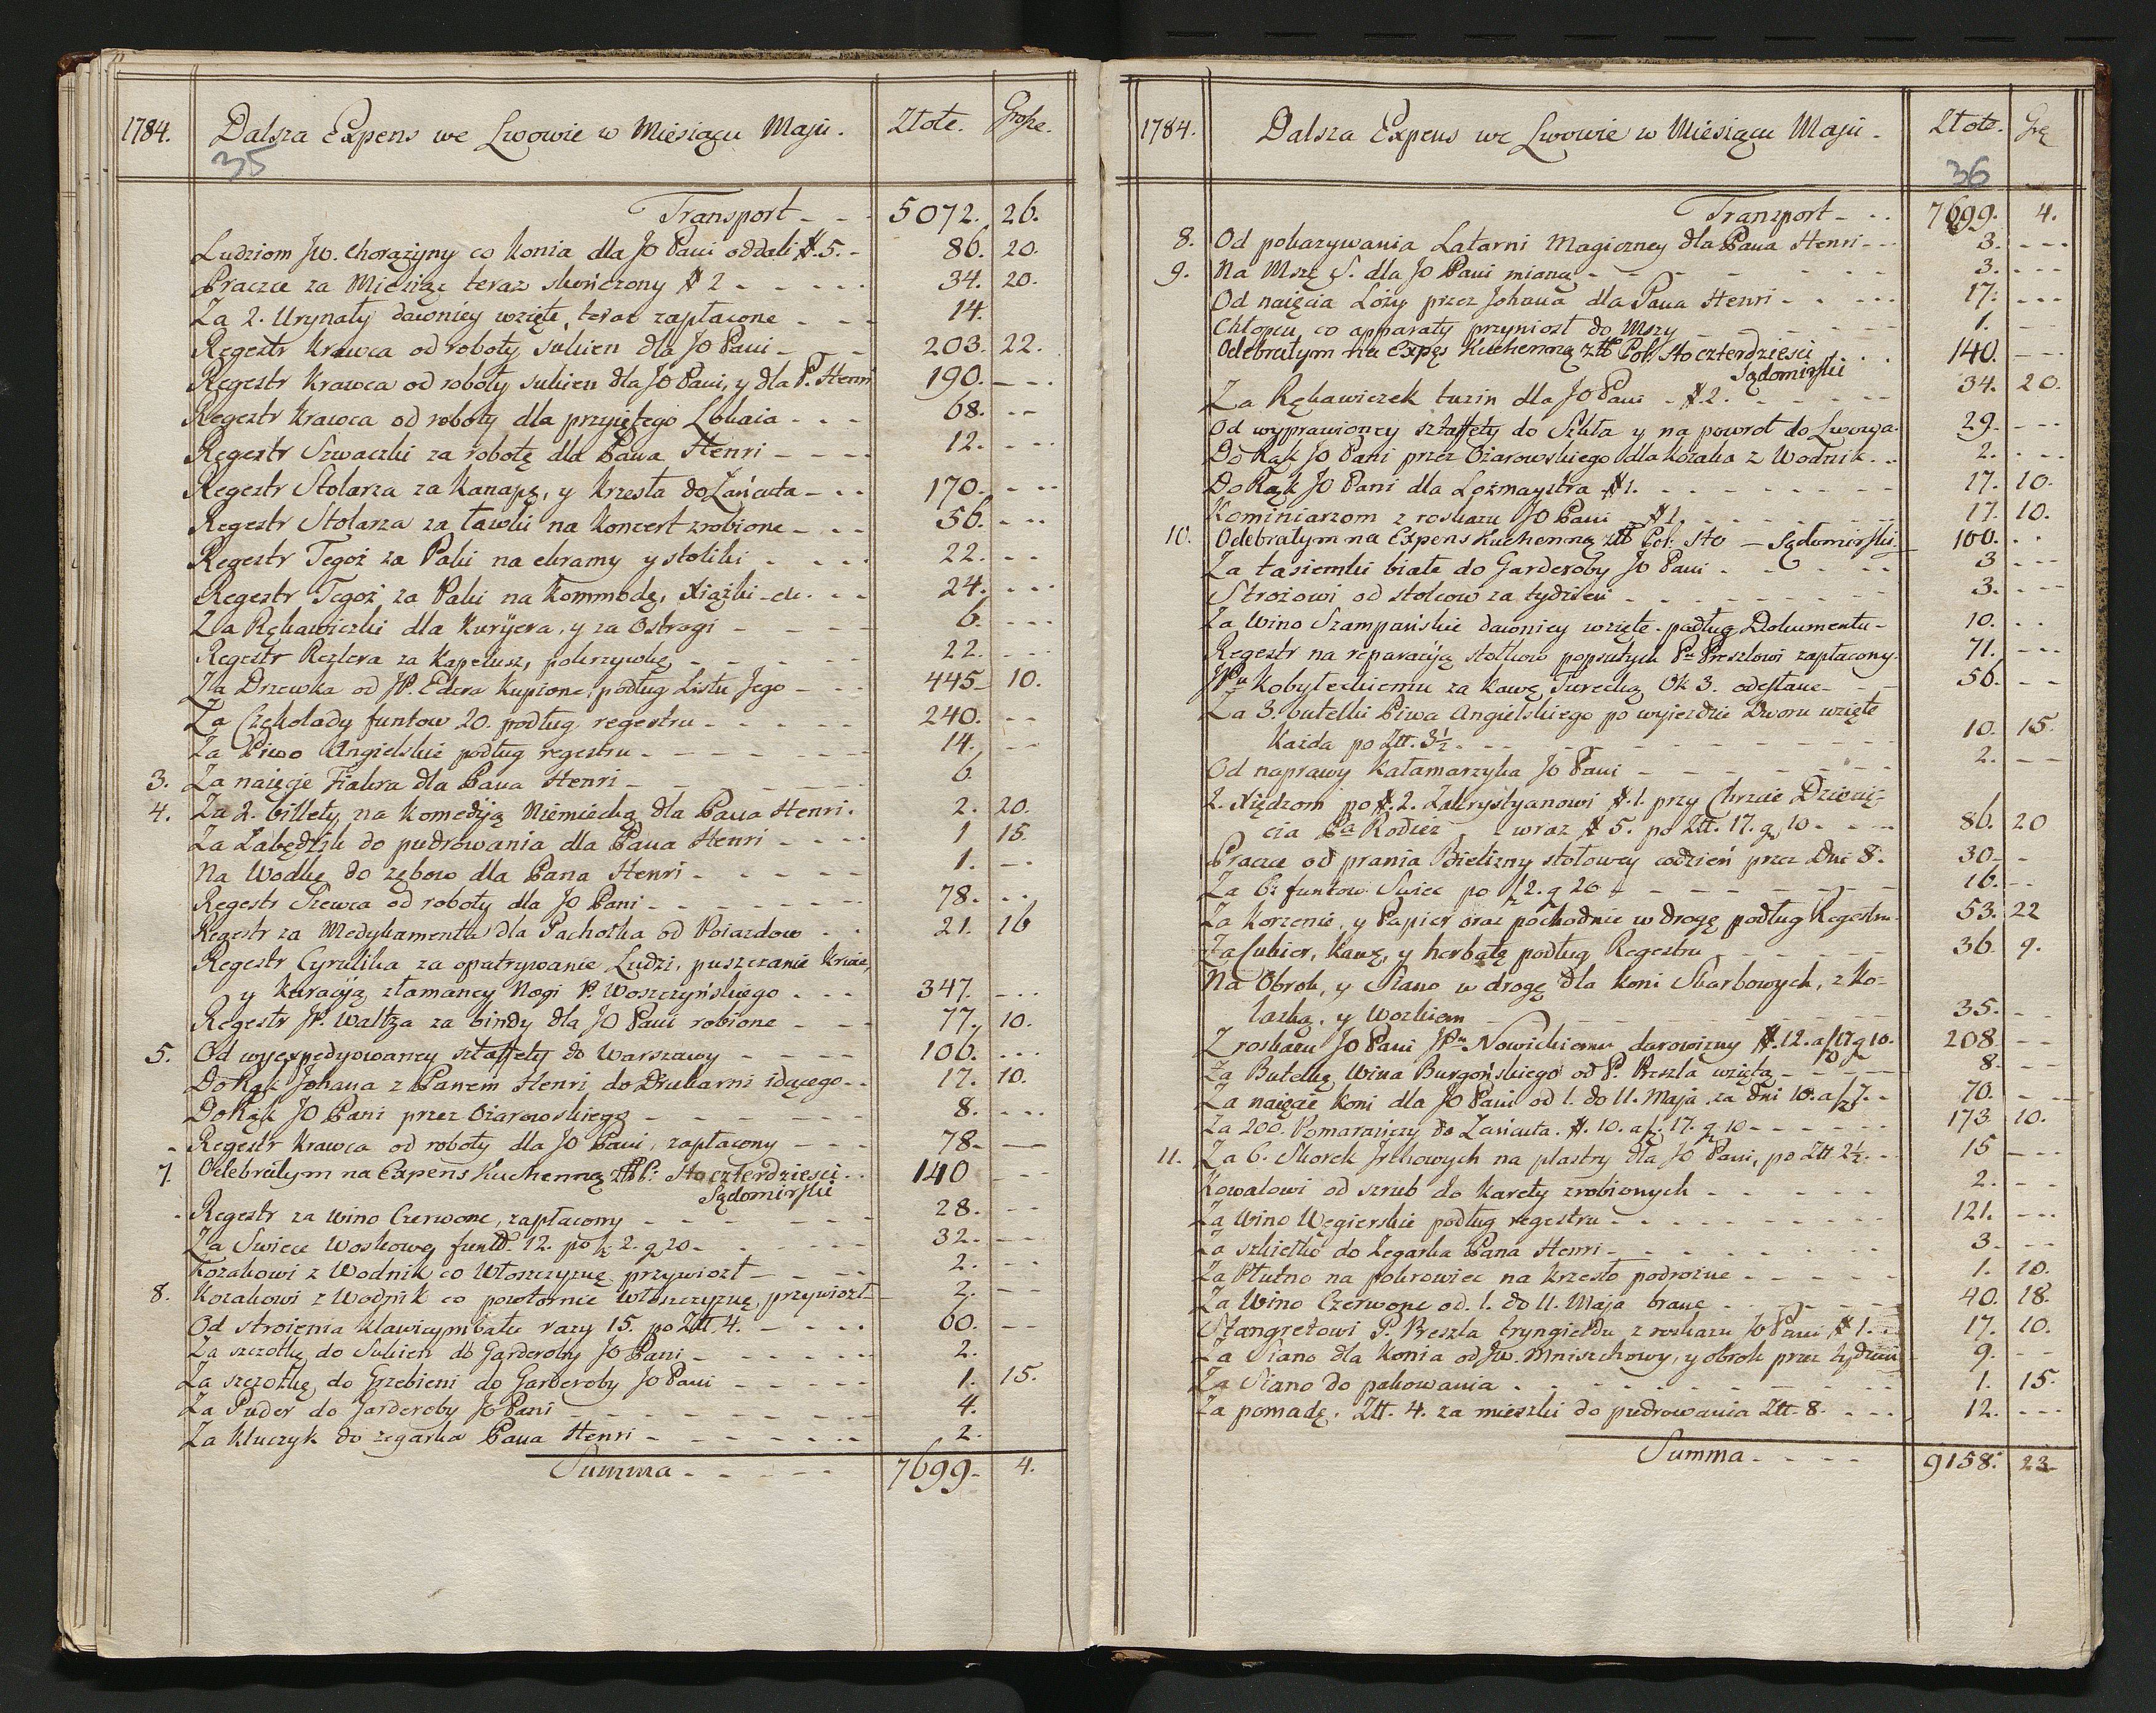 1784. Dalsza Expens we Lwowie w Miesiącu Maju. Złote. Grosze.
35
Transport - - 5072. 26.
Ludziom JW. Chorążyny co konia dla JO Pani oddali #. 5. - 86. 20.
Praczce za Miesiąc teraz skończony # 2 - - - - - 34. 20.
Za 2. Urynały dawniey wzięte, teraz zapłacone - - - 14.
Regestr Krawca od roboty sukien dla JO Pani - - 203. 22.
Regestr Krawca od roboty sukien dla JO Pani, y dla P. Henri 190. - - -
Regestr Krawca od roboty dla przyiętego Lokaia - - - 68. - -
Regestr Szwaczki za robotę dla Pana Henri - - - - 12. - - -
Regestr Stolarza za Kanapę, y krzesła do Łańcuta - - - 170. - - -
Regestr Stolarza za ławki na koncert zrobione - - - 56. - - -
Regestr Tegoż za Paki na ekrany y stoliki - - - - 22. - -
Regestr Tegoż za Paki na Kommodę, Xiążki etc. - - 24. - - -
Za Rękawiczki dla Kuryiera, y za Ostrogi - - - - 6. - - -
Regestr Rezlera za Kapelusz, pokrzywkę - - - - - 22. - - -
Za Drzewka od JP. Edera Kupione, podług Listu Jego - - - 445 - 10.
Za Czekolady funtow 20. podług regestru - - - - - 240. - -
Za Piwo Angielskie podług regestru - - - - - - - 14. - -
3. Za naięcie Fiakra dla Pana Henri - - - - - - 6.
4. Za 2. billety na Komedyją Niemiecką dla Pana Henri. 2. 20.
Za Łabędzik do pudrowania dla Pana Henri - - - - 1 15.
Na Wodkę do zębow dla Pana Henri - - - - - 1. - -
Regestr Szewca od roboty dla JO Pani - - - - - - - 78. - - -
Regestr za Medykamenta dla Pachołka od Poiazdow - - 21. 16
Regestr Cyrulika za opatrywanie Ludzi, puszczanie krwie,
y kuracyją złamaney Nogi P. Woszczyńskiego - - - 347. - - -
Regestr JP. Waltza za bindy dla JO Pani robione - - - 77. 10.
5. Od wyexpedyowaney sztaffety do Warszawy - - - - 106. - - -
Do Rąk Johana z Panem Henri do Drukarni idącego - - 17. 10.
Do Rąk JO Pani przez Ożarowskiego - - - - - - - 8. - - -
- Regestr Krawca od roboty dla JO Pani, zapłacony - - - 78 - -
7. Odebrałym na Expens Kuchenną Złł P: Sto czterdziesci - - 140 - - -
Sądomirski
- Regestr za Wino Czerwone, zapłacony - - - - - - 28. - -
Za Swiece Woskowe funtt. 12. po f. 2. g 20 - - - - - - 32. - -
Kozakowi z Wodnik co Włoszczyznę przywiozł - - - - 2. - -
8. Kozakowi z Wodnik co powtornie włoszczyznę, przywiozł - 2. - -
Od stroienia klawicymbału razy 15. po Złł. 4. - - - - 60. - -
Za szczotkę do Sukien do Garderoby JO Pani - - - - - - 2.
Za szczotkę do Grzebieni do Garderoby JO Pani - - - - - 1. 15.
Za Puder do Garderoby JO Pani - - - - - - - - - 4.
Za Kluczyk do zegarka Pana Henri - - - - - - - 2.
Summa - - - - - - 7699 - 4.
1784. Dalsza Expens we Lwowie w Miesiącu Maju - Złote. Grę
36
Transport - - - 7699. 4.
8. Od pokazywania Latarni Magiczney dla Pana Henri - - - 3. - - -
9. Na Mszę S. dla JO Pani mianą - - - - - - - - 3. - - -
Od naięcia Loży przez Johana dla Pana Henri - - - - - 17. - - -
Chłopcu, co apparaty przyniosł do Mszy - - - - - - 1. - -
Odebrałym na Expęs Kuchenną złł Pol: Sto czterdziesci - - - 140. - - -
Sądomirski
Za Rękawiczek tuzin dla JO Pani - #. 2. - - - - - - 34. 20.
Od wyprawioney sztaffety do Szkła y na powrot do Lwowa - 29. - - -
Do Rąk JO Pani przez Ożarowskiego dla kozaka z Wodnik - - 2. - - -
Do Rąk JO Pani dla Lożmaystra # 1. - - - - - - - - 17. 10.
Kominiarzom z roskazu JO Pani - # 1. - - - - - - - 17. 10.
10. Odebrałym na Expens Kuchenną złł Pol: Sto - Sądomirski 100. - -
Za tasiemki białe do Garderoby JO Pani - - - - - - 3 - - -
Strożowi od stolcow za tydzień - - - - - - - - - 3. - - -
Za Wino Szampańskie dawniey wzięte podług Dokumentu - 10. - -
Regestr na reparacyją stołkow popsutych Pu Preszlowi zapłacony. 71. - - -
JPu Kobyłeckiemu za kawę Turecką Ok 3. odesłane - - - 56. - -
Za 3. butelki Piwa Angielskiego po wyjezdzie Dworu wzięte
Każda po Złł. 3½. - - - - - - - - - - 10. 15.
Od naprawy Kałamarzyka JO Pani - - - - - - - 2. - -
2. Xiędzom po #. 2. Zakrystyanowi #. 1. przy Chrzcie Dziecię-
cia Pa Rodier - wraz # 5. po Złł. 17. g 10 - - - - 86. 20
Praczce od prania Bielizny stołowey codzień przez Dni 8. 30 - -
Za 6. funtow Swiec po f 2. g 20 - - - - - - - 16. - -
Za Korzenie, y Papier oraz pochodnie w drogę podług Regestru - 53. 22
Za Cukier, Kawę, y herbatę podług Regestru - - - - - 36. 9.
Na Obrok, y Siano w drogę dla koni Skarbowych, z Ko-
laską, y Wozkiem - - - - - - - - - - 35. - -
Z roskazu JO Pani JPu Nowickiemu darowizny #. 12. a f 17 g 10. 208 - -
Za Butelkę Wina Burgońskiego od P. Preszla wziętą - - - - 8. - -
Za naięcie Koni dla JO Pani od 1. do 11. Maja za Dni 10. a f 7. - 70. - - -
Za 200. Pomarańczy do Łańcuta. #. 10. a f. 17. g 10 - - - - - - 173 10.
11. Za 6. Skorek Irchowych na plastry dla JO Pani, po Złł 2½. - - 15 - - -
Kowalowi od szrub do Karety zrobionych - - - - - - 2. - -
Za Wino Węgierskie podług regestru - - - - - - - - - 121. - - -
Za szkiełko do Zegarka Pana Henri - - - - - - - 3 - - -
Za Płutno na pokrowiec na krzesło podrożne - - - - - 1. 10.
Za Wino Czerwone od. 1. do 11. Maja brane - - - - - - 40. 18.
Stangretowi P. Preszla tryngieldu z roskazu JO Pani # 1. - - 17. 10.
Za Siano dla konia od JW. Mniszchowy, y obrok przez tydzień 9. - -
Za Siano do pakowania - - - - - - - - - - - 1. 15.
Za pomadę. Złł. 4. za mieszki do pudrowania Złł. 8. - - - - 12. - - -
Summa - - - - 9158. 23